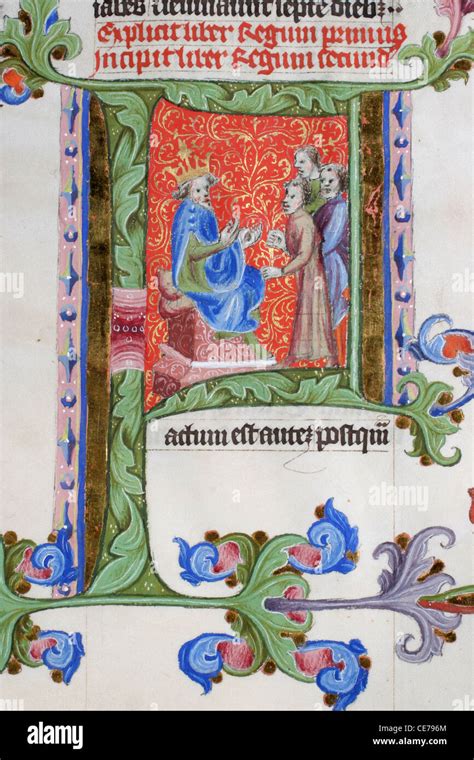 iabes ieiunauunt septē dieb
Explicit liber Regum primus
Incipit liber Regum secund
actum est autez postqm
alamy
alamy
alamy
Image ID: CE796M
www.alamy.com